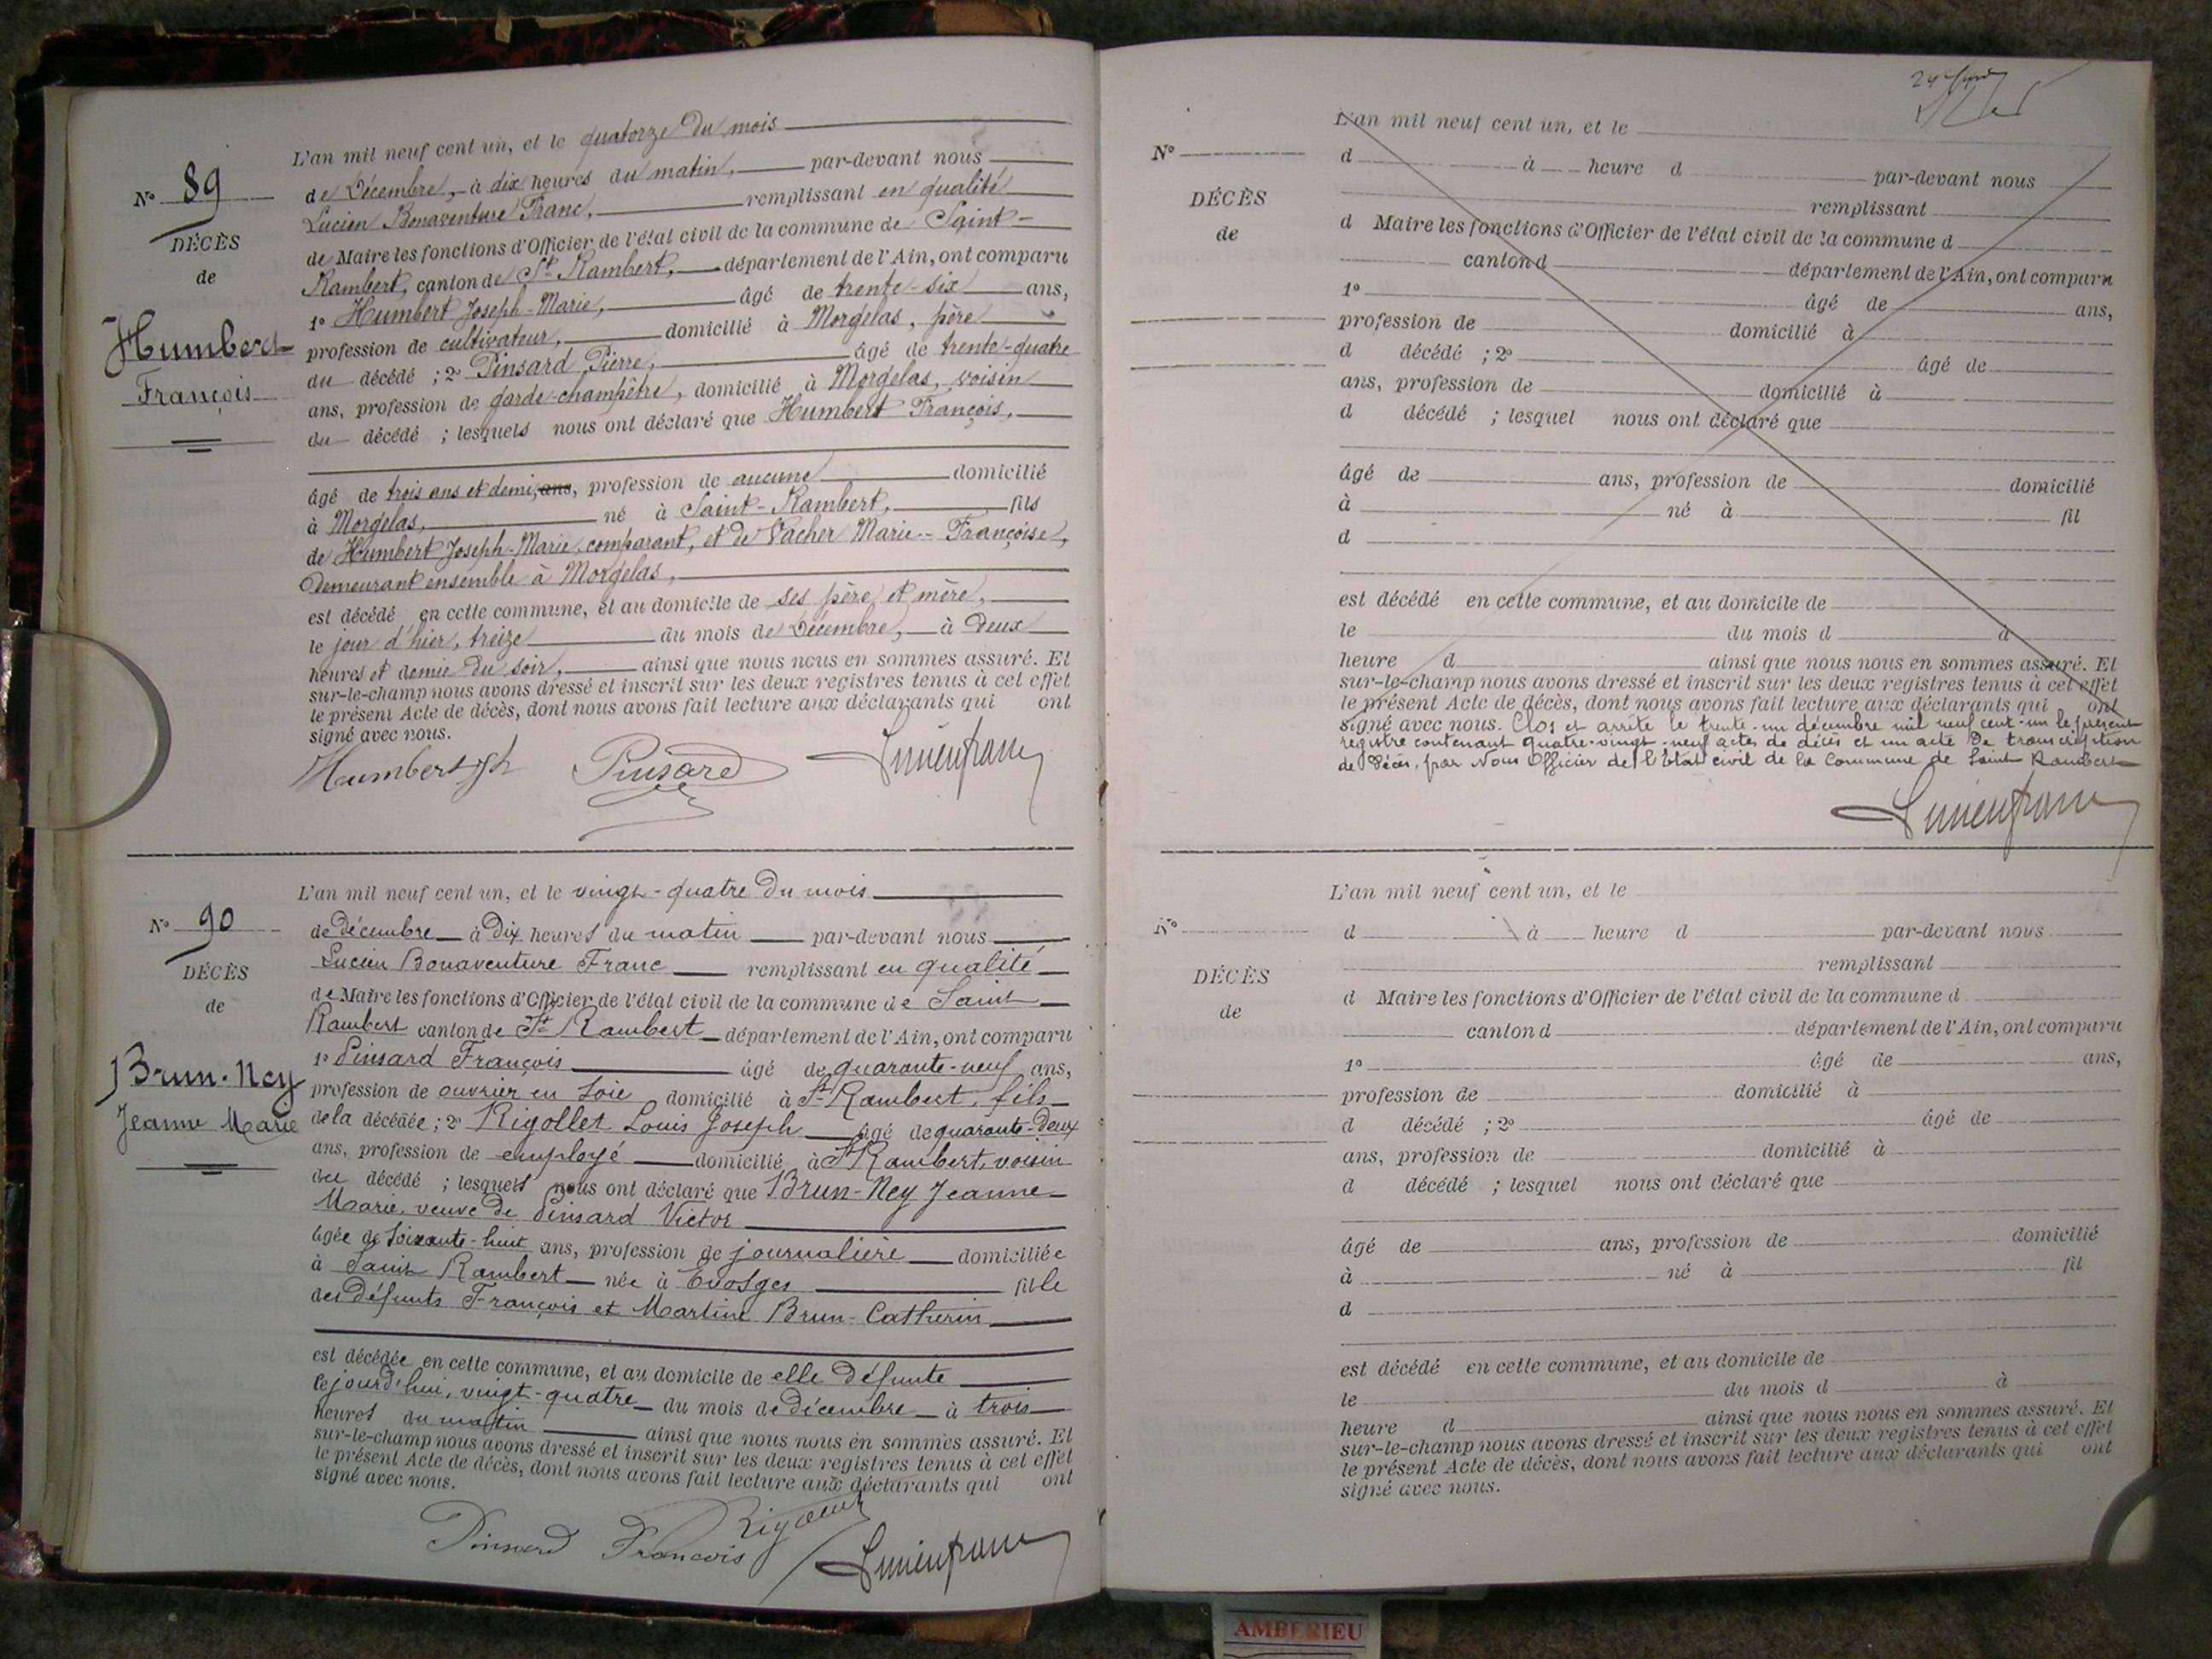 L'an mil neuf cent un, et le quatorze du mois
N° 89
DÉCÈS
de
Humbert
François
de Décembre, à dix heures du matin, par-devant nous
Lucien Bonaventure Franc, remplissant en qualité
de Maire les fonctions d'Officier de l'état civil de la commune de Saint-
Rambert, canton de St Rambert, département de l'Ain, ont comparu
1° Humbert Joseph-Marie, âgé de trente-six ans,
profession de cultivateur, domicilié à Morgelas, père
du décédé ; 2° Pinsard Pierre, âgé de trente-quatre
ans, profession de garde-champêtre, domicilié à Morgelas, voisin
du décédé ; lesquels nous ont déclaré que Humbert François,
âgé de trois ans et demi, ans, profession de aucune domicilié
à Morgelas, né à Saint-Rambert, fils
de Humbert Joseph-Marie, comparant, et de Vacher Marie-Françoise,
demeurant ensemble à Morgelas,
est décédé en cette commune, et au domicile de ses père et mère,
le jour d'hier, treize du mois de Décembre, à deux
heures et demie du soir, ainsi que nous nous en sommes assuré. Et
sur-le-champ nous avons dressé et inscrit sur les deux registres tenus à cet effet
le présent Acte de décès, dont nous avons fait lecture aux déclarants qui ont
signé avec nous.
Humbert Jh Pinsard Lucien franc
L'an mil neuf cent un, et le vingt-quatre du mois
N° 90
DÉCÈS
de
Brun-Ney
Jeanne Marie
de décembre à dix heures du matin par-devant nous
Lucien Bonaventure Franc remplissant en qualité
de Maire les fonctions d'Officier de l'état civil de la commune de Saint
Rambert canton de St Rambert département de l'Ain, ont comparu
1° Pinsard François âgé de quarante-neuf ans,
profession de ouvrier en soie domicilié à St Rambert, fils
de la décédée ; 2° Rigollet Louis Joseph âgé de quarante-deux
ans, profession de employé domicilié à St Rambert, voisin
du décédé ; lesquels nous ont déclaré que Brun-Ney Jeanne
Marie, veuve de Pinsard Victor
âgée de soixante-huit ans, profession de journalière domiciliée
à Saint Rambert née à Evosges fille
des défunts François et Martine Brun-Catherin
est décédée en cette commune, et au domicile de elle défunte
le jourd'hui, vingt-quatre du mois de décembre à trois
heures du matin ainsi que nous nous en sommes assuré. Et
sur-le-champ nous avons dressé et inscrit sur les deux registres tenus à cet effet
le présent Acte de décès, dont nous avons fait lecture aux déclarants qui ont
signé avec nous.
Rigollet
Pinsard François Lucien franc
L'an mil neuf cent un, et le
N°
DÉCÈS
de
d à heure d par-devant nous
remplissant
d Maire les fonctions d'Officier de l'état civil de la commune d
canton d département de l'Ain, ont comparu
1° âgé de ans,
profession de domicilié à
d décédé ; 2° âgé de
ans, profession de domicilié à
d décédé ; lesquel nous ont déclaré que
âgé de ans, profession de domicilié
à né à fil
d
est décédé en cette commune, et au domicile de
le du mois d à
heure d ainsi que nous nous en sommes assuré. Et
sur-le-champ nous avons dressé et inscrit sur les deux registres tenus à cet effet
le présent Acte de décès, dont nous avons fait lecture aux déclarants qui ont
signé avec nous. Clos et arrêté le trente-un décembre mil neuf cent-un le présent
registre contenant quatre-vingt-neuf actes de décès et un acte de transcription
de décès, par Nous Officier de l'Etat civil de la Commune de Saint Rambert
Lucien franc
L'an mil neuf cent un, et le
N°
DÉCÈS
de
d à heure d par-devant nous
remplissant
d Maire les fonctions d'Officier de l'état civil de la commune d
canton d département de l'Ain, ont comparu
1° âgé de ans,
profession de domicilié à
d décédé ; 2° âgé de
ans, profession de domicilié à
d décédé ; lesquel nous ont déclaré que
âgé de ans, profession de domicilié
à né à fil
d
est décédé en cette commune, et au domicile de
le du mois d à
heure d ainsi que nous nous en sommes assuré. Et
sur-le-champ nous avons dressé et inscrit sur les deux registres tenus à cet effet
le présent Acte de décès, dont nous avons fait lecture aux déclarants qui ont
signé avec nous.
AMBERIEU